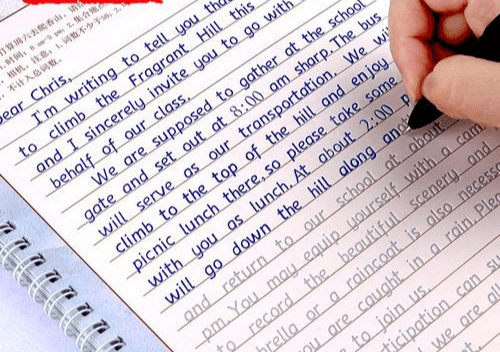 计算周六去爬香山，请
时间，8 am-5 pm; 2.集合地点
相机。注意：1.词数不少于
不计入总词数。
Dear Chris,
I'm writing to tell you that
to climb the Fragrant Hill this
and I sincerely invite you to go with
behalf of our class.
We are supposed to gather at the school
gate and set out at 8:00 am sharp. The bus
will serve as our transportation. We wi
climb to the top of the hill and enjoy
picnic lunch there, so please take some
with you as lunch. At about 2:00 p
will go down the hill along ano
and return to our school at about
pm. You may equip yourself with a cam
to record the beautiful scenery and
brella or a raincoat is also necess
ou are caught in a rain. Plea
to join us.
rticipation can su
we are all